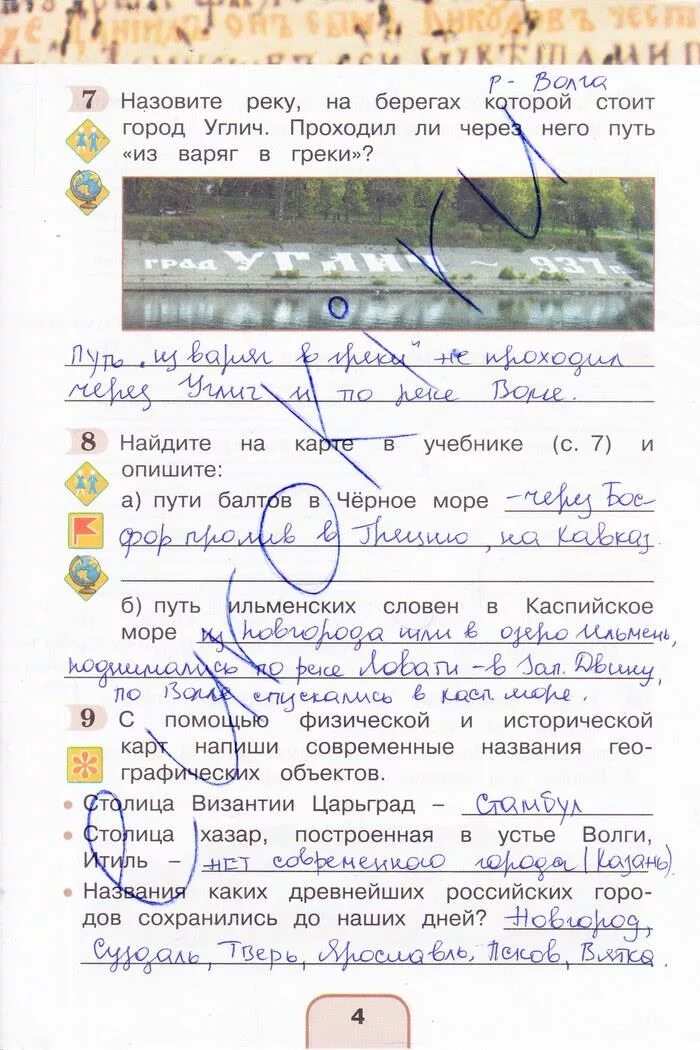 р - Волга
7 Назовите реку, на берегах которой стоит
город Углич. Проходил ли через него путь
«из варяг в греки»?
ГРАД УГЛИЧ ~ 937г.
Путь „из варяг в греки" не проходил
через Углич и по реке Волге.
8 Найдите на карте в учебнике (с. 7) и
опишите:
а) пути балтов в Чёрное море – через Бос-
фор пролив в Грецию, на Кавказ.
б) путь ильменских словен в Каспийское
море из Новгорода шли в озеро Ильмень,
поднимались по реке Ловати – в Зап. Двину,
по Волге спускались в касп море.
9 С помощью физической и исторической
карт напиши современные названия гео-
графических объектов.
• Столица Византии Царьград – Стамбул
• Столица хазар, построенная в устье Волги,
Итиль – нет современного города (Казань)
• Названия каких древнейших российских горо-
дов сохранились до наших дней? Новгород,
Суздаль, Тверь, Ярославль, Псков, Вятка.
4